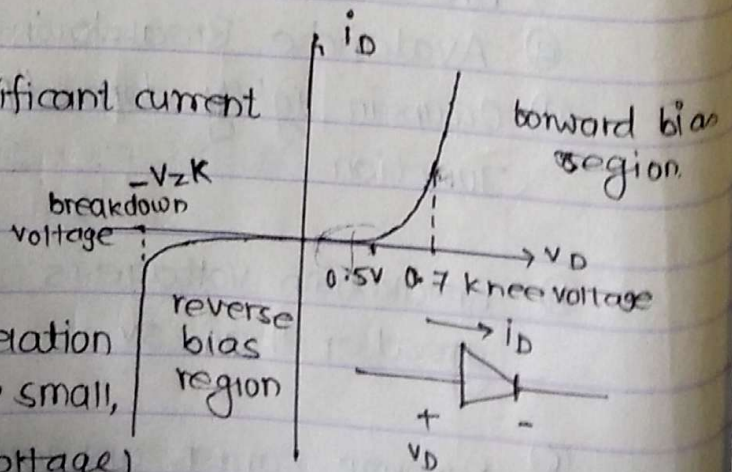 iD
ificant current
forward bias
region.
-VZK
breakdown
voltage
VD
0.5V 0.7 knee voltage
reverse
bias
region
iD
elation
small,
+ -
VD
oltage)